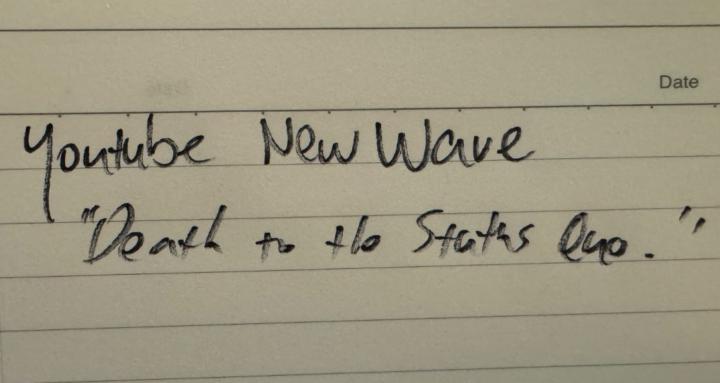 Date
Youtube New Wave
"Death to the Status Quo."